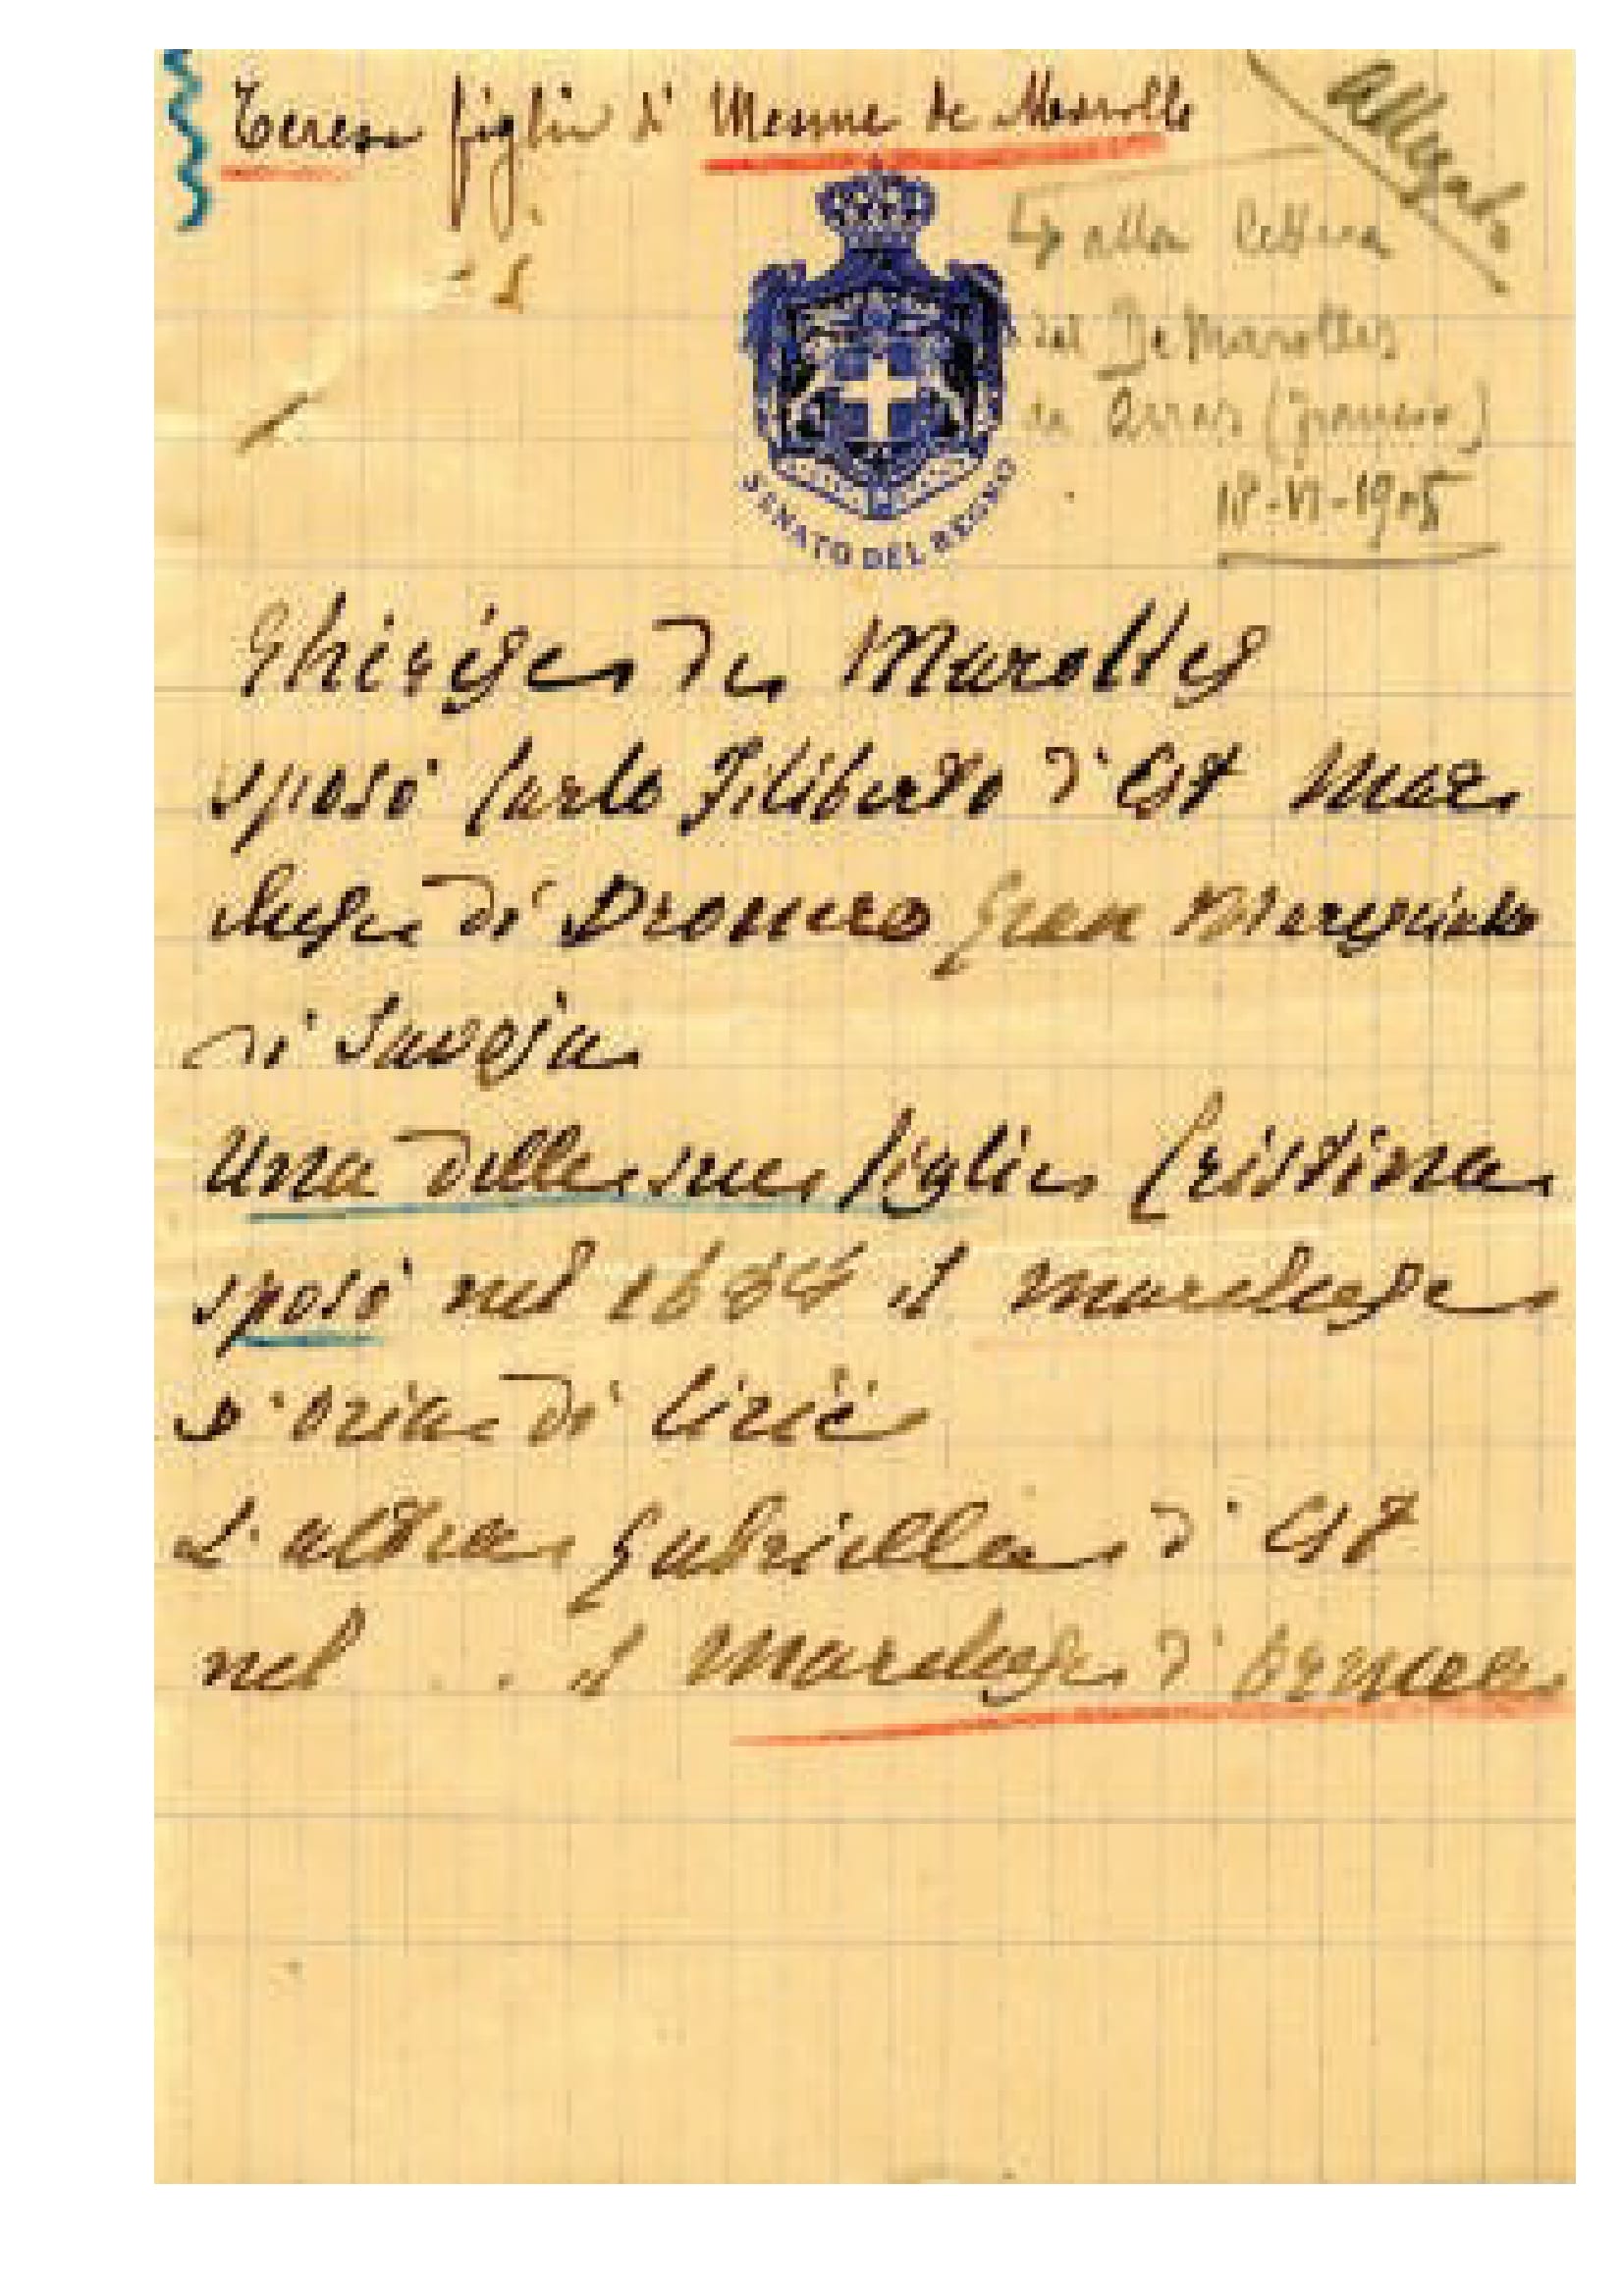 Teresa figlia di Mesme de Marolle
Allegato
alla lettera
del De Marolles
da Arras (Francia)
18-VI-1905
SENATO DEL REGNO
Thérèse de Marolles
sposò Carlo Filiberto d'Est Mar
chese di Dronero Gran
di Savoja
Una delle sue figlie Cristina
sposò nel il marchese
D'Oria di Ciriè
L'altra Gabriella d'Est
nel . . il Marchese d'Ormea